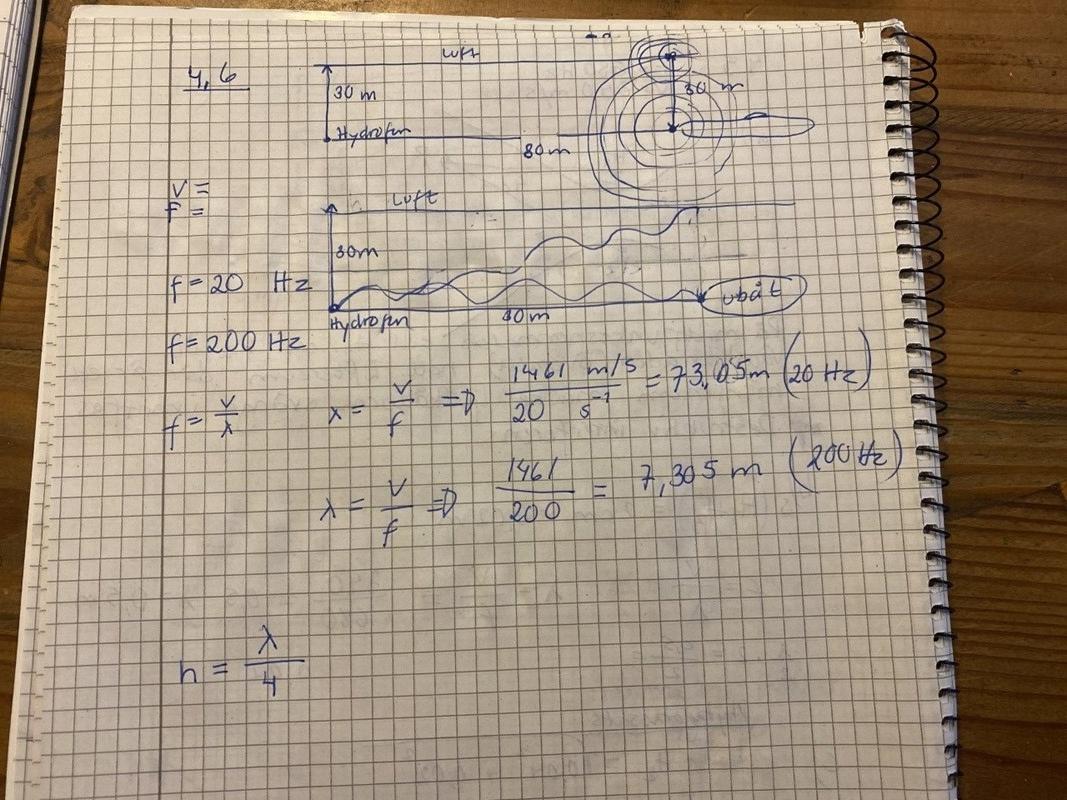 4,6
Luft
30 m
30 m
Hydrofon
80 m
v =
f =
Luft
30m
f = 20 Hz
ubåt
Hydrofon
80m
f = 200 Hz
f = v/λ
λ = v/f ⇒ 1461 m/s / 20 s⁻¹ = 73,05m (20 Hz)
λ = v/f ⇒ 1461/200 = 7,305 m (200 Hz)
h = λ/4